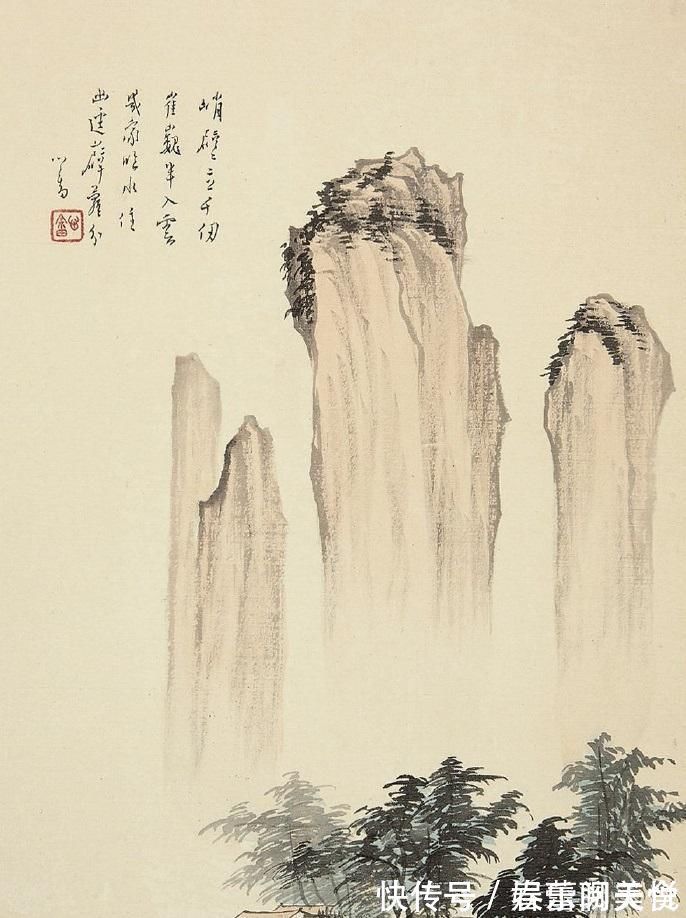 峭壁立千仞
崔巍半入雲
幾家臨水住
幽逕薜蘿分
心畬
快传号 /